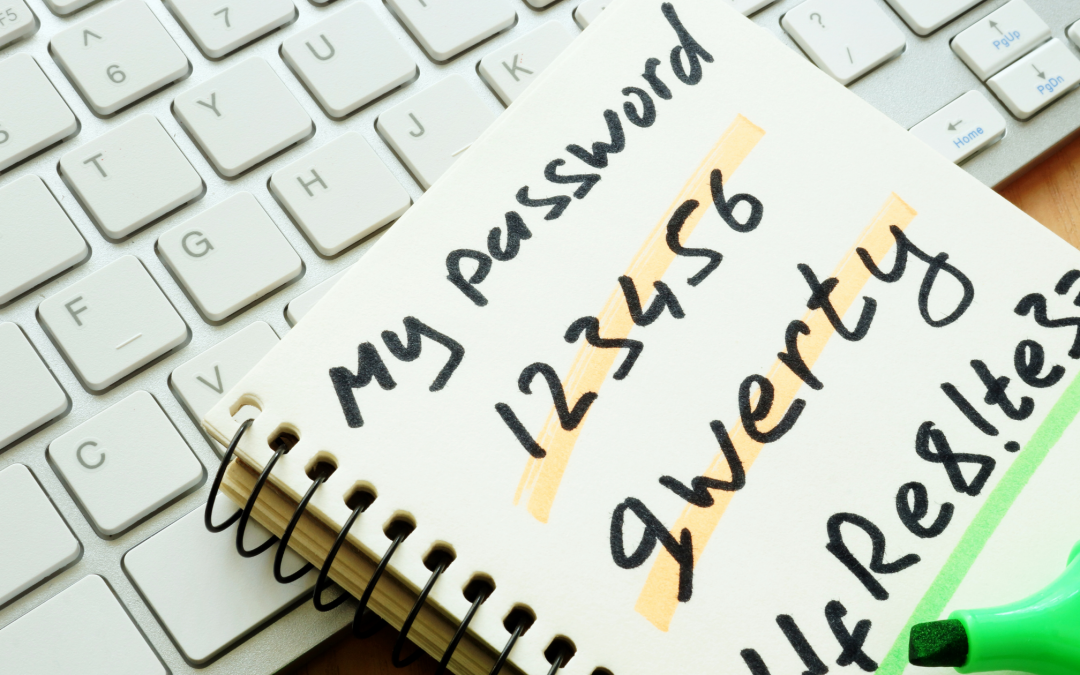 F5
7
^
6
U
Y
K
J
T
H
G
F
V
C
?
/
PgUp
PgDn
Home
My password
123456
qwerty
fRe8!te3